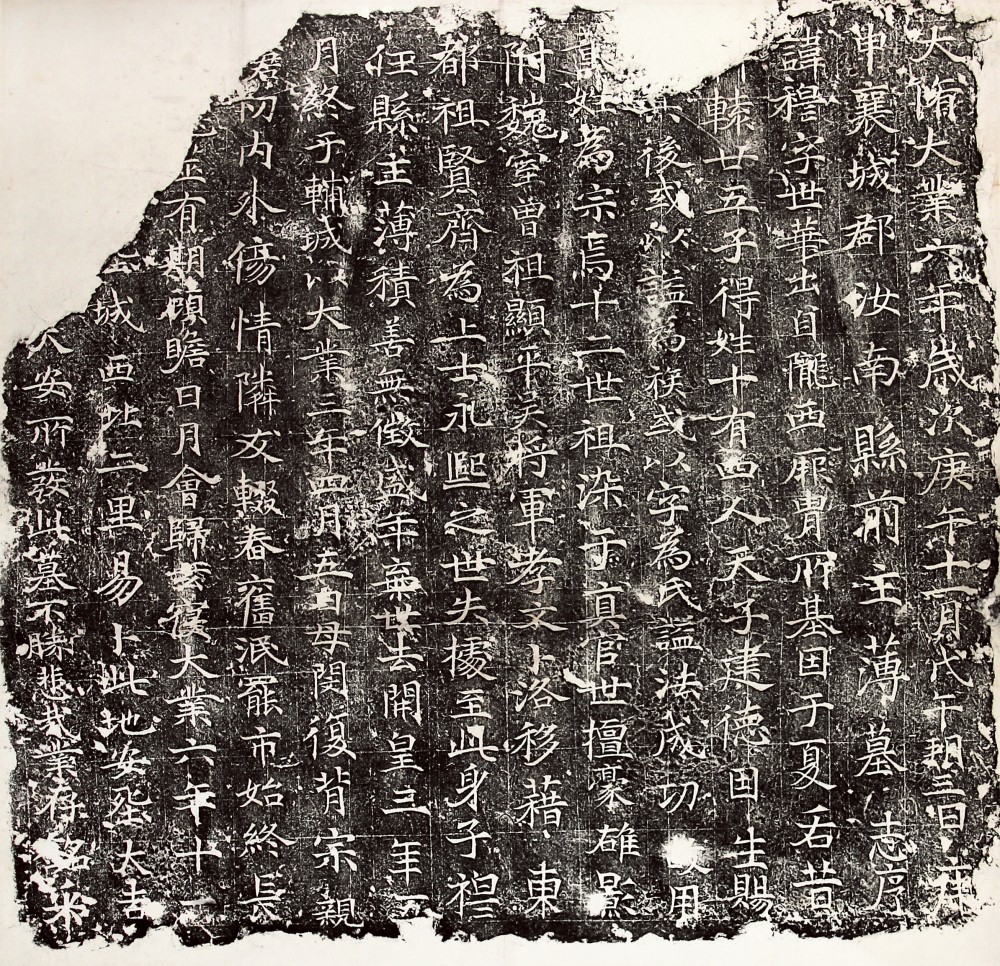 大隋大業六年歲次庚午十一月戊午朔三日庚
申襄城郡汝南縣前主薄墓志序
諱穆字世華出自隴西厥胄所基因于夏后昔
轅廿五子得姓十有四人天子建德因生賜
後或以謚為族或以字為氏謚法咸切用
為宗焉十二世祖染于真官世擅豪雄景
附魏室曾祖顯平吴将軍孝文卜洛移藉東
都祖賢齊為上士永熙之世夫據至此身子裎
任縣主薄積善無徵盛年棄世去開皇三年
月終于輔城以大業三年四月五日母閔復背宗親
初内外傷情隣友輟舂舊泯罷市始終長
有期頌瞻日月會歸玄寢大業六年十一
城西北二里易卜此地安𡊮太吉
久安所發此墓不勝悲哉業存名